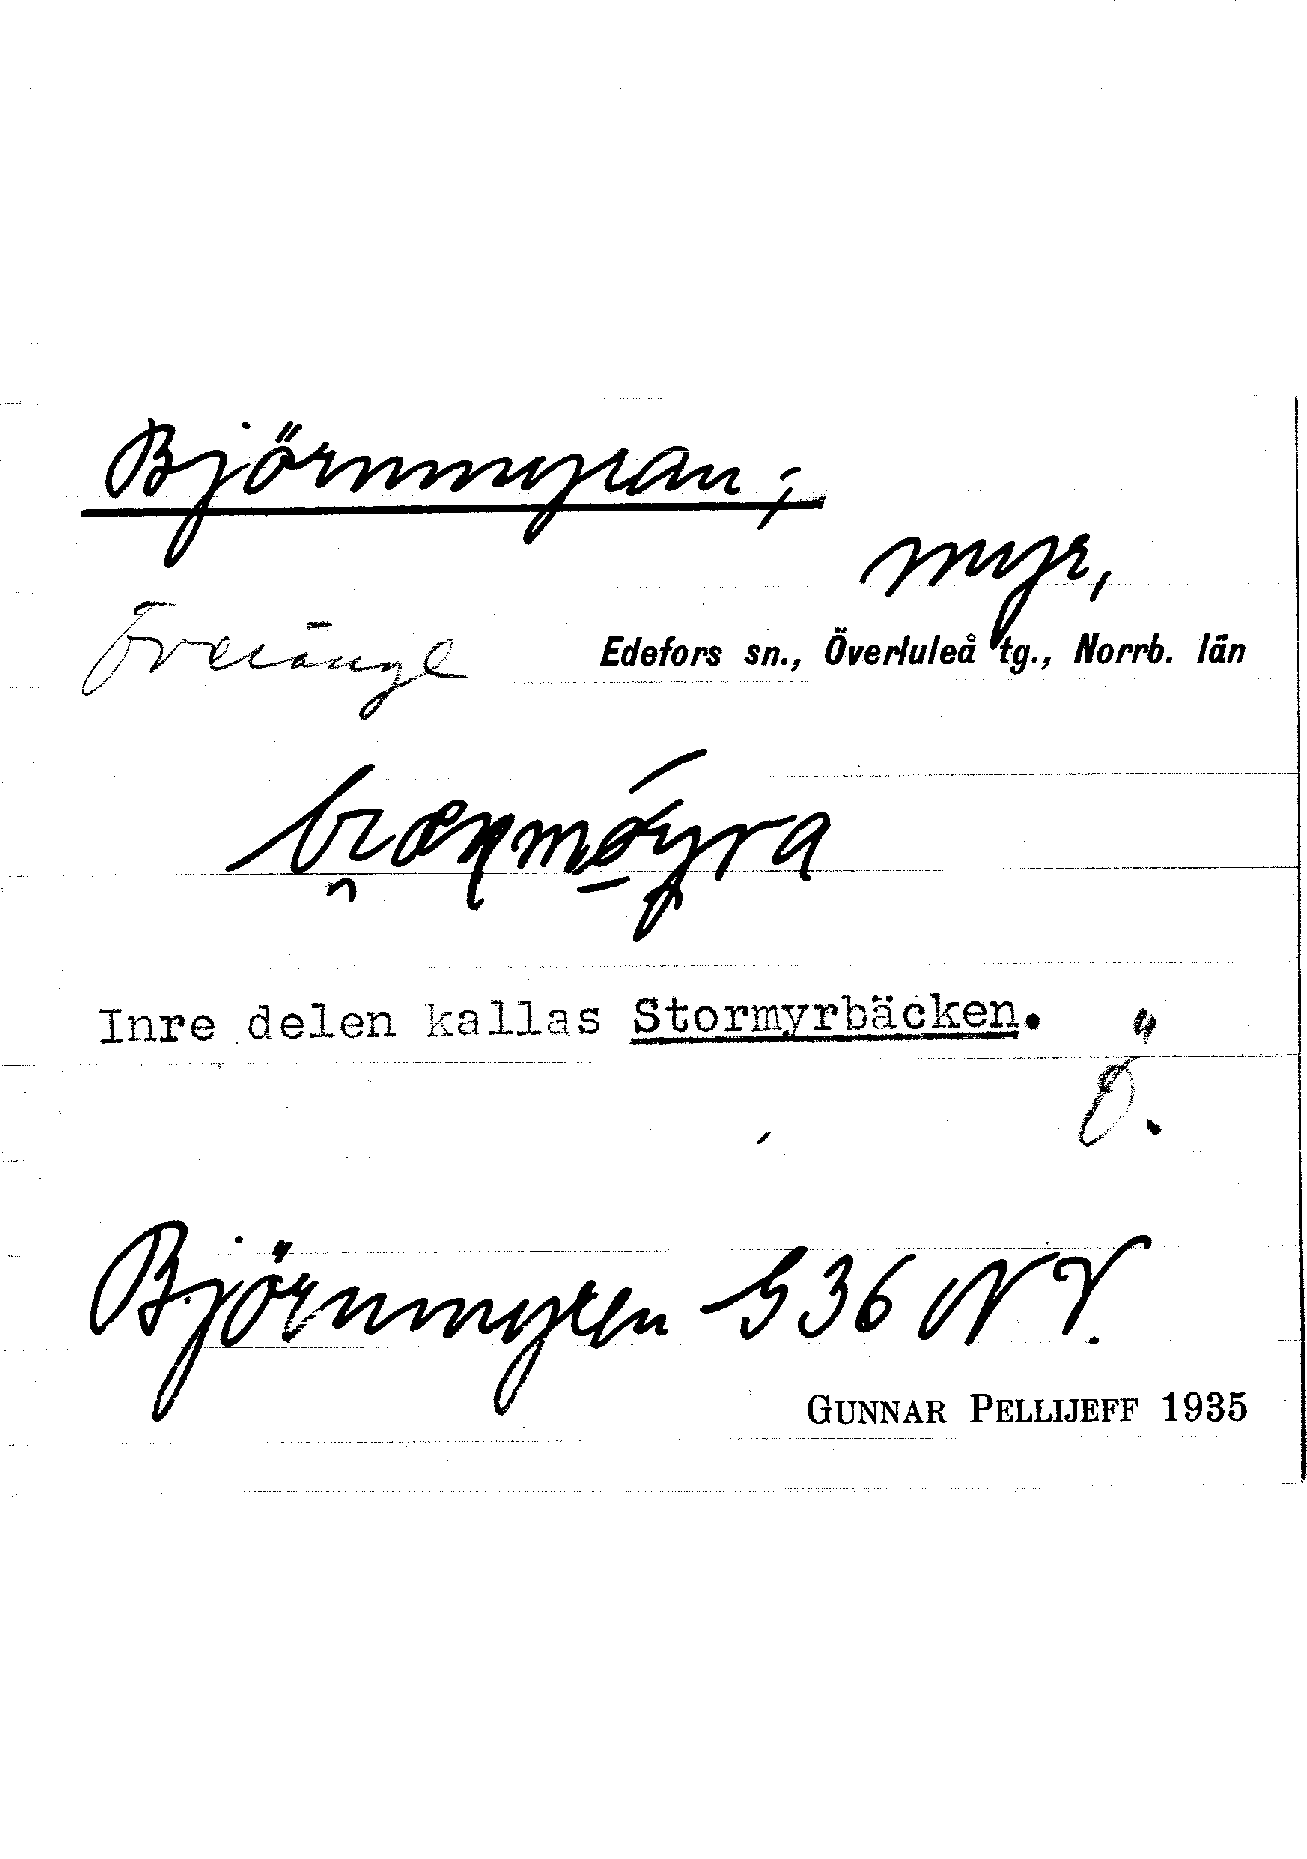 Björnmyran;
myr,
Edefors sn., Överluleå tg., Norrb. län
Inre delen kallas Stormyrbäcken.
Ö.
Björnmyren G36 NV.
GUNNAR PELLIJEFF 1935